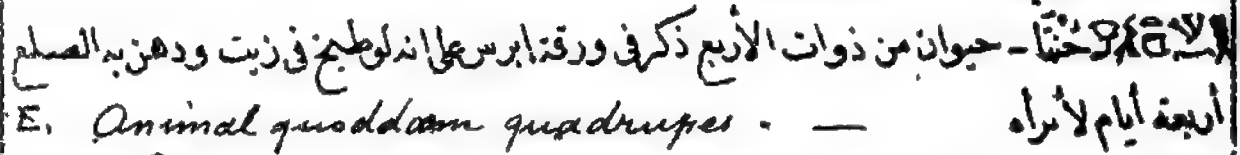 حُنتًا - حيوان من ذوات الأربع ذكر فى ورقة ابرس على انه لو طبخ فى زيت ودهن به الصلع
أربعة أيام لأبرأه
E. Animal quoddam quadrupes. —